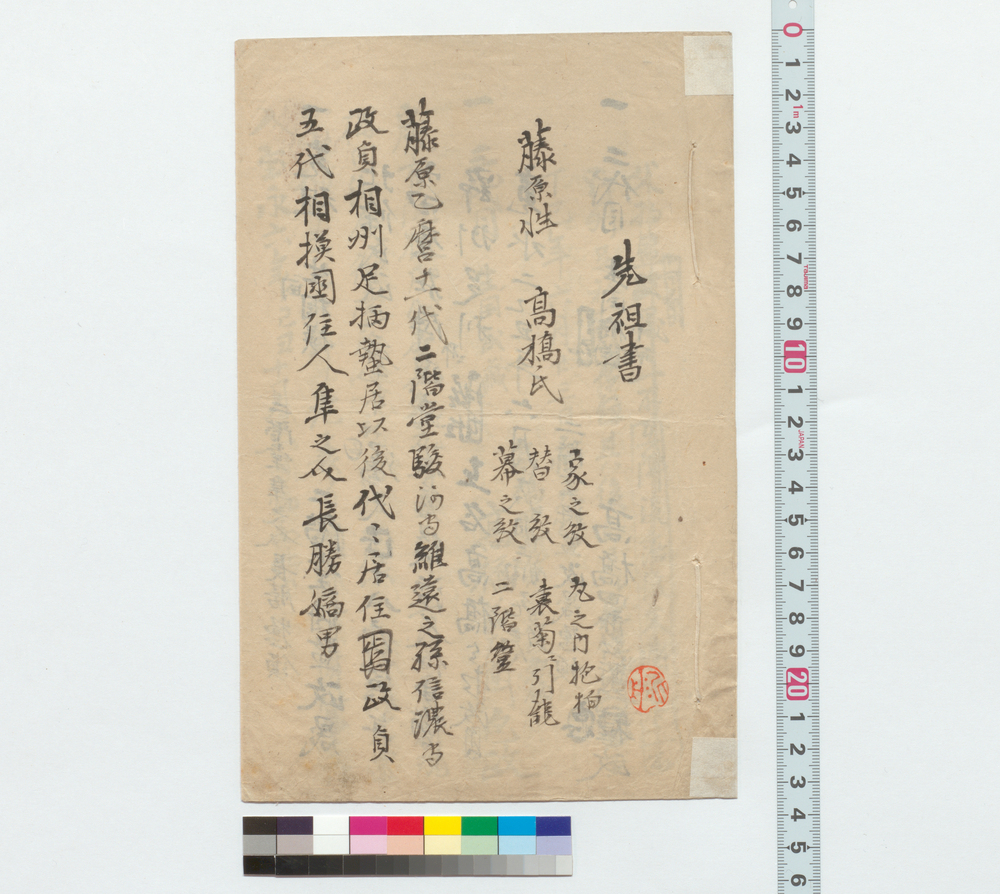 先祖書
藤原姓 高橋氏
家之紋 丸之内抱柏
替紋 裏菊ニ引龍
幕之紋 二階笠
藤原乙麿十一代二階堂駿河守維遠之孫信濃守
政負相州足柄蟄居以後代々居住政負
五代相摸國住人隼之介長勝嫡男
0 1 2 3 4 5 6 7 8 9 10 1 2 3 4 5 6 7 8 9 20 1 2 3 4 5 6
1m
JAPAN